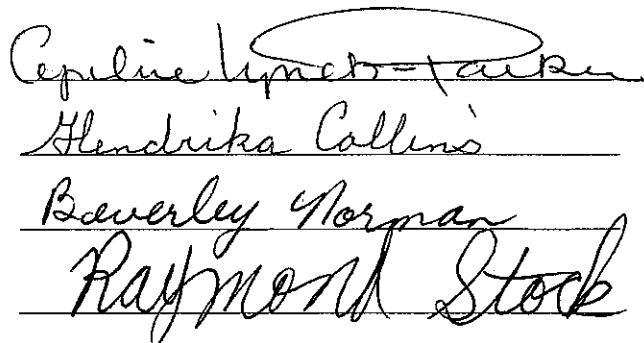 Lynch-Parker
Hendrika Collins
Beverley Norman
Raymond Stock